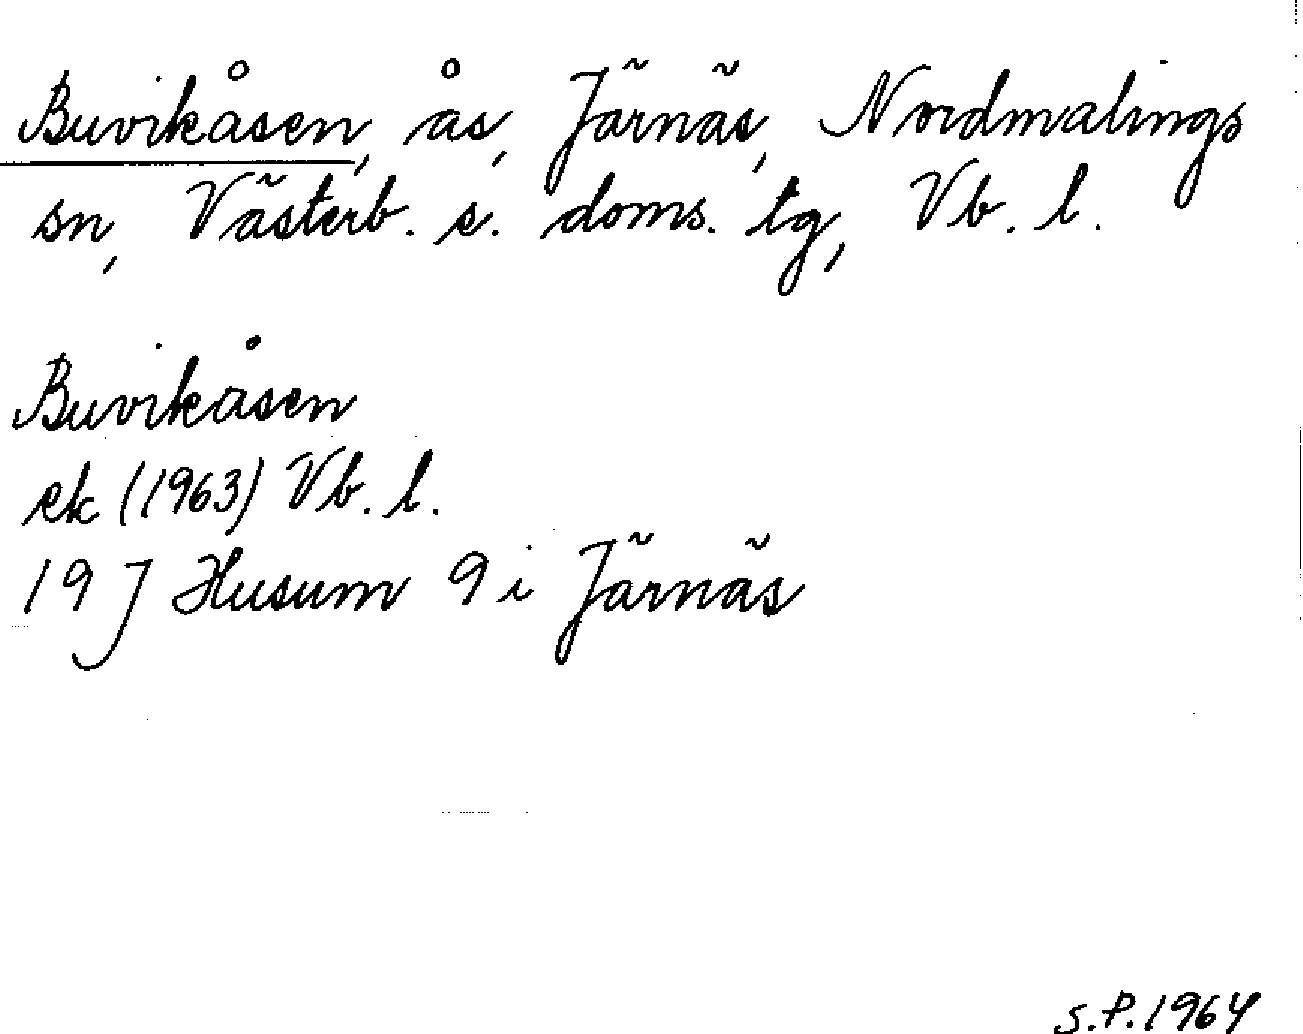 Buvikåsen, ås, Järnäs, Nordmalings
sn, Västerb. s. doms. tg, Vb. l.
Buvikåsen
ek (1963) Vb. l.
19 J Husum 9 i Järnäs
S.P. 1964